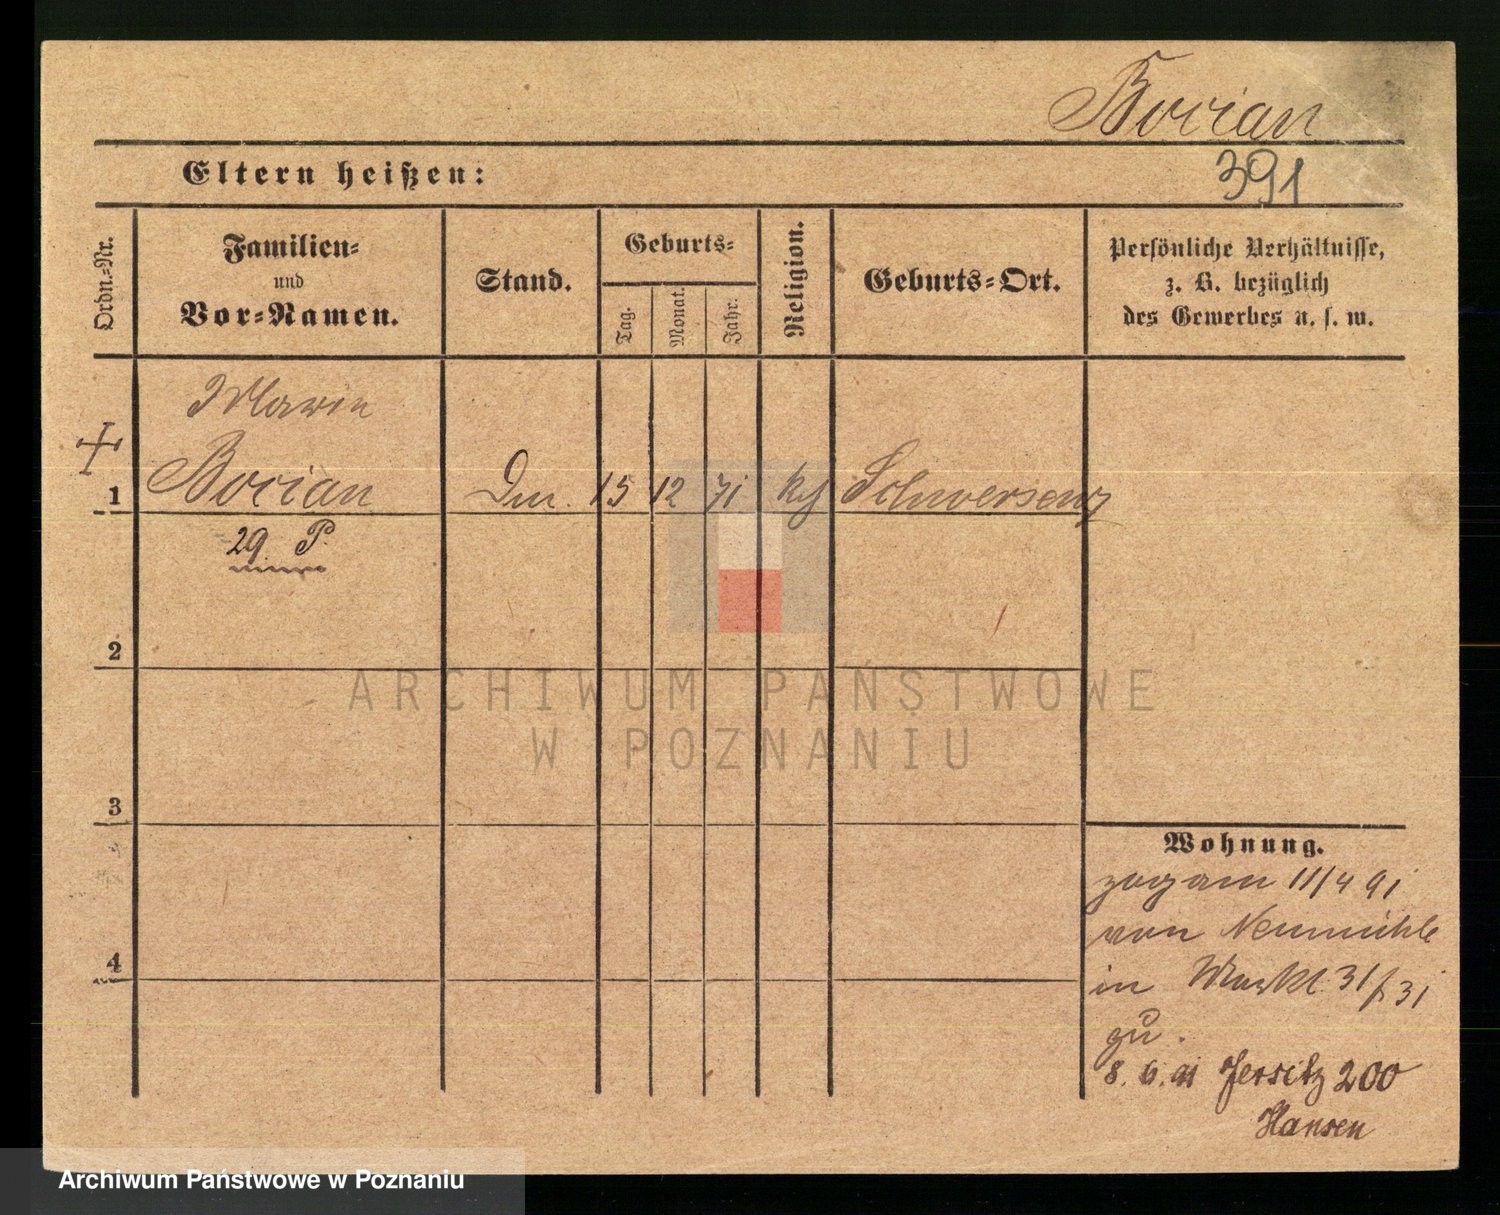 Bocian
391
Eltern heißen:
Ordn.-Nr.
Familien-
und
Vor-Namen.
Stand.
Geburts-
Tag.
Monat.
Jahr.
Religion.
Geburts-Ort.
Persönliche Verhältnisse,
z. B. bezüglich
des Gewerbes u. s. w.
Marie
1 Bocian 15 12 71 Schwersenz
29. P.
2
ARCHIWUM PAŃSTWOWE
W POZNANIU
3
4
Wohnung.
zog am 11/4 91
von Neumühle
in 31/ 31
zu.
8. 6. 91 Jersitz 200
Hansen
Archiwum Państwowe w Poznaniu